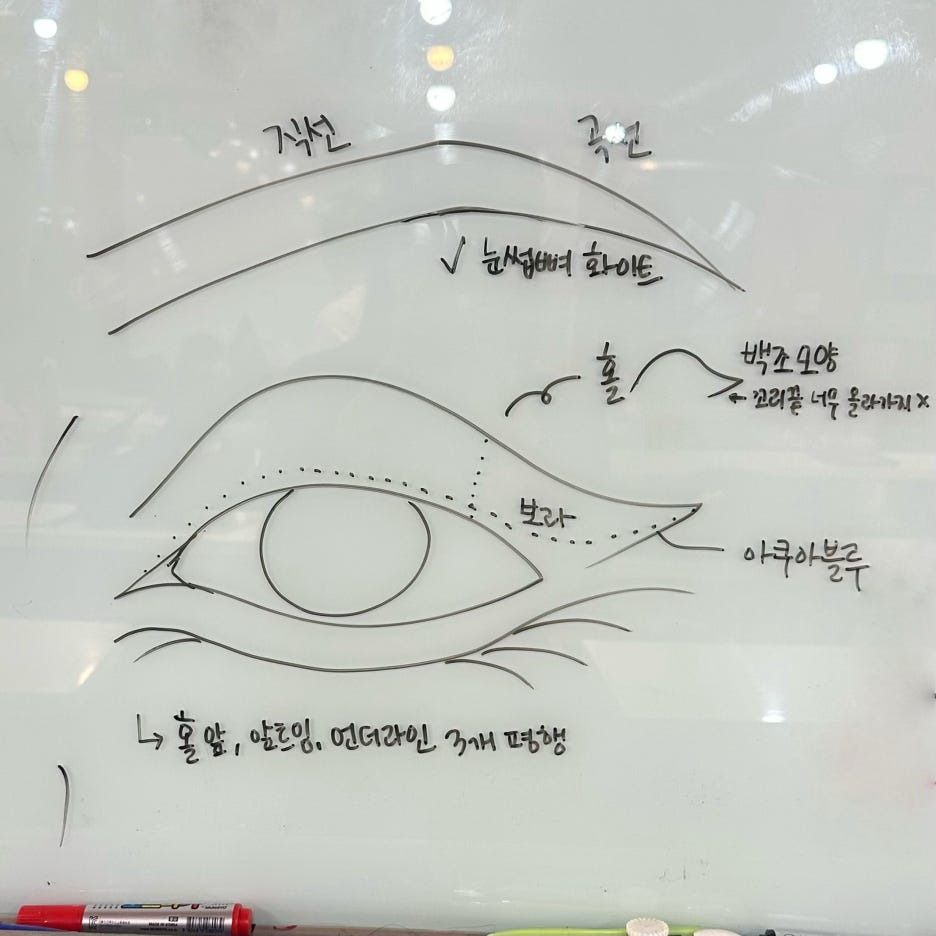 직선
곡선
✓ 눈썹뼈 화이트
홀
백조모양
← 꼬리끝 너무 올라가지 X
보라
아쿠아블루
↳ 홀 앞, 앞트임, 언더라인 3개 평행